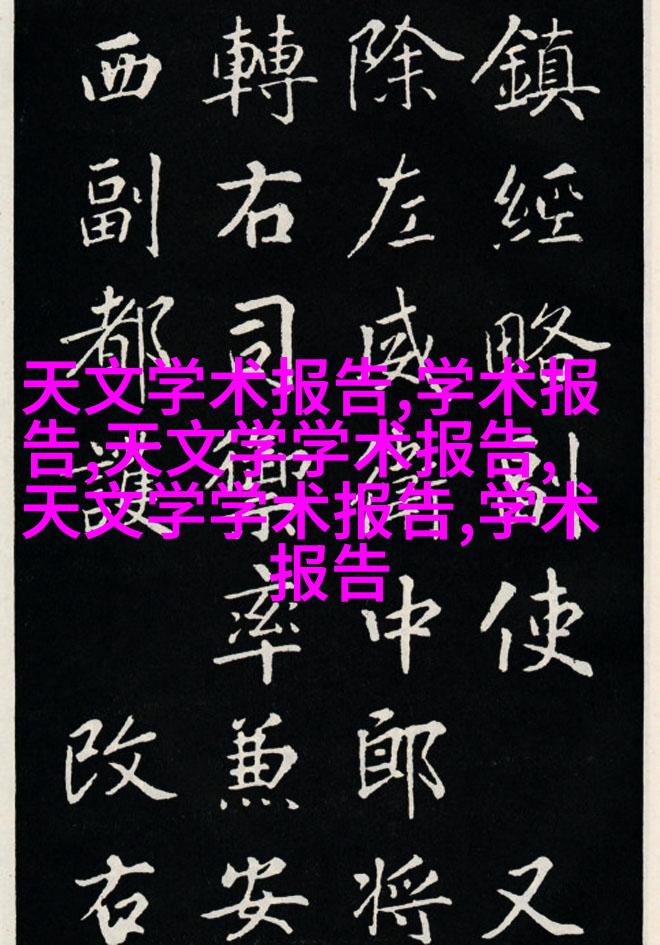 鎮經略副使又
除左威衛中郎将
轉右司禦率兼安
西副都護改右
天文学术报告,学术报
告,天文学学术报告,
天文学学术报告,学术
报告